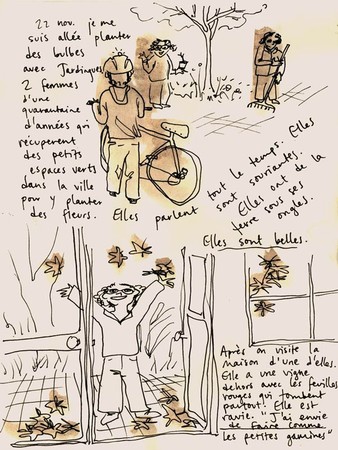 22 nov. je me
suis allée planter
des bulbes
avec Jardinque
2 femmes
d'une
quarantaine
d'années qui
récuperent
des petits
espaces verts
dans la ville
pour y planter
des fleurs. Elles parlent
tout le temps. Elles
sont souriantes.
Elles ont de la
terre sous ses
ongles.
Elles sont belles.
Après on visite la
maison d'une d'elles.
Elle a une vigne
dehors avec les feuilles
rouges qui tombent
partout! Elle est
ravie. "J'ai envie
de faire comme
les petites gamines"